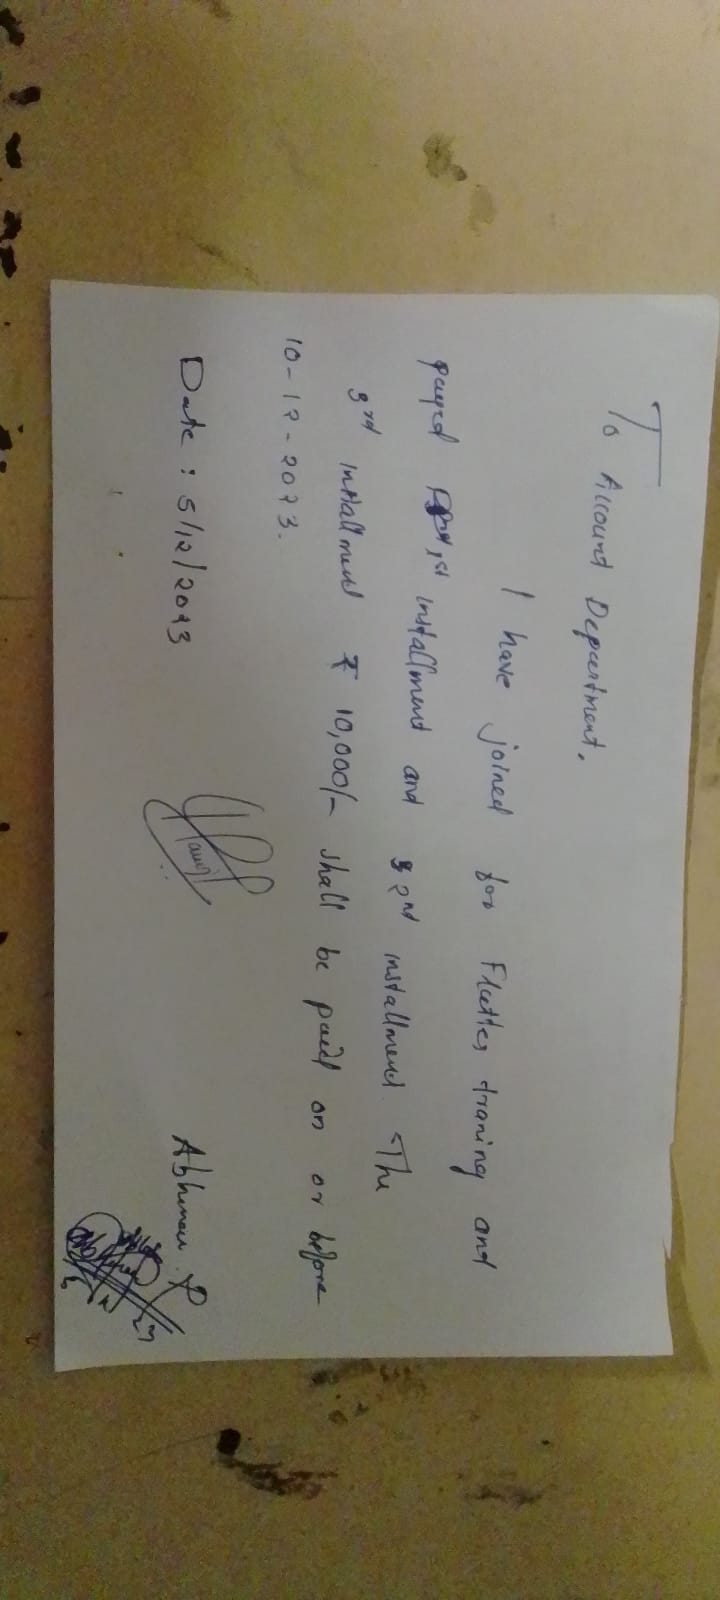 To Account Department.
I have joined for Flutter traning and
payed 1st installment and 2nd installment. The
3rd installment ₹ 10,000/- shall be paid on or before
10-12-2023.
Date : 5/12/2023
Abhinav P